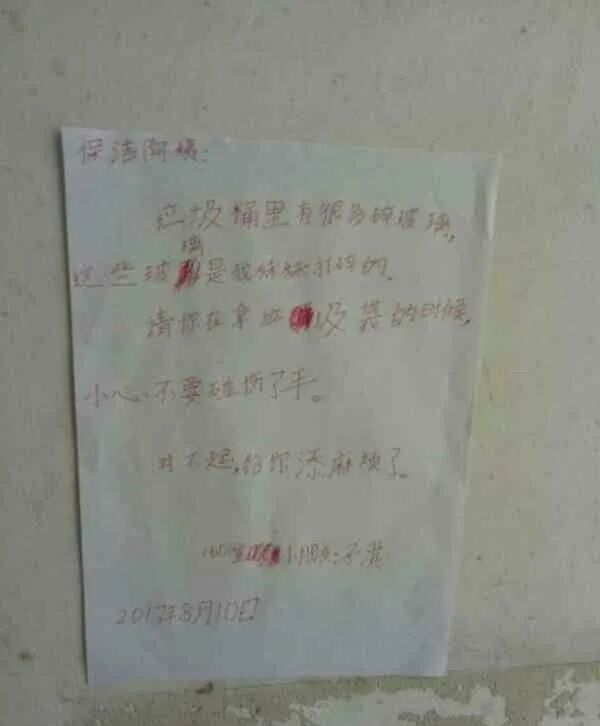 保洁阿姨：
垃圾桶里有很多碎玻璃，
这些玻璃是我妹妹打碎的。
请你在拿垃圾袋的时候，
小心不要碰伤了手。
对不起，给你添麻烦了。
小朋友：子淇
2017年8月10日